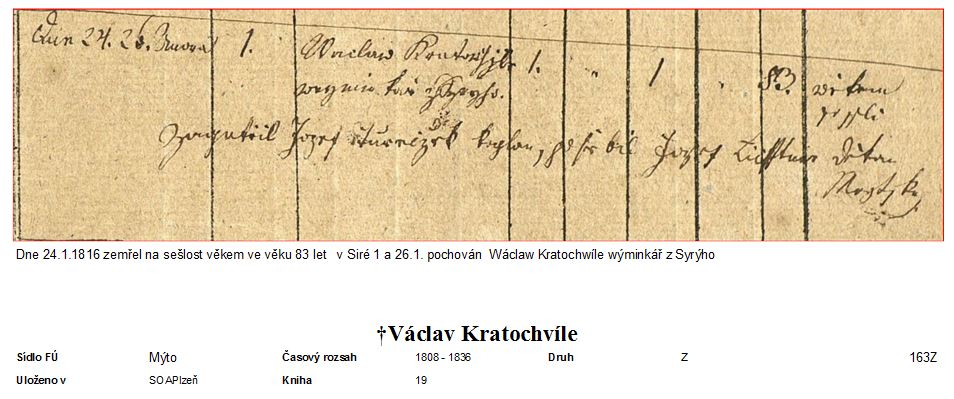 Dne 24. 26. 1. Waclaw Kratochwile 1. " 1 " 83. wěkem
weyminkář z Syryho. sessli
zaopatřil Jozef kaplan, pohřbil Jozef děkan
Dne 24.1.1816 zemřel na sešlost věkem ve věku 83 let v Siré 1 a 26.1. pochován Wáclaw Kratochwíle wýminkář z Syrýho
†Václav Kratochvíle
Sídlo FÚ Mýto Časový rozsah 1808 - 1836 Druh Z 163Z
Uloženo v SOAPlzeň Kniha 19